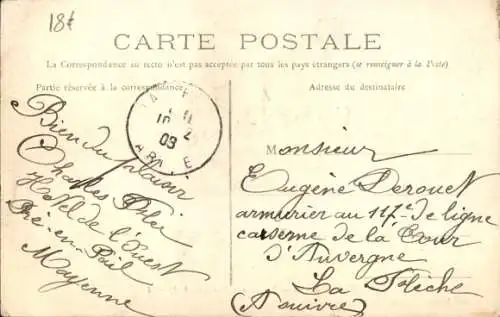 18€
CARTE POSTALE
La Correspondance au recto n'est pas acceptée par tous les pays étrangers (se renseigner à la Poste)
Partie réservée à la correspondance
Adresse du destinataire
10 - 2
03
Bien du plaisir
Charles
Hotel de l'Ouest
Pré-en-Pail
Mayenne
Monsieur
Eugène Derouet
armurier au 117e de ligne
caserne de la Tour
d'Auvergne
La Flèche
(Suivre)